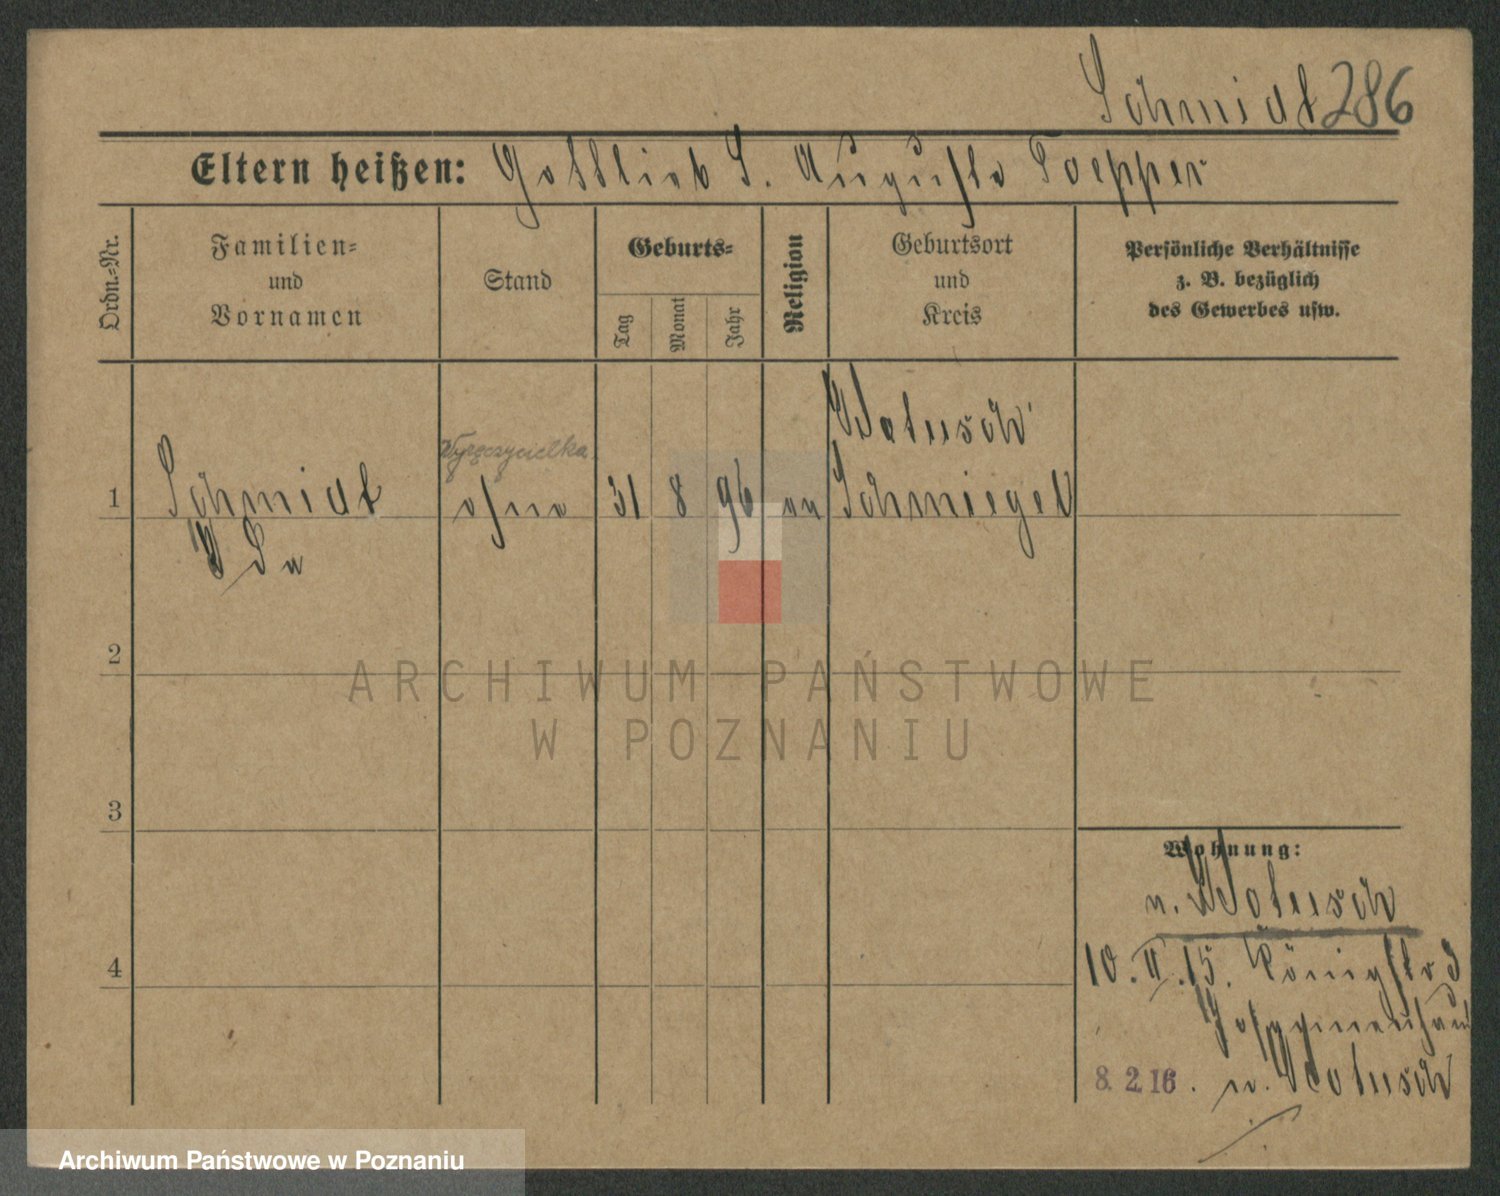 Schmidt 286
Eltern heißen: Gottlieb S. Auguste Toepper
Ordn.-Nr.
Familien-
und
Vornamen
Stand
Geburts-
Tag
Monat
Jahr
Religion
Geburtsort
und
Kreis
Persönliche Verhältnisse
z. B. bezüglich
des Gewerbes usw.
1
Schmidt
Ida
Wyręczycielka
ohne
31 8 96
Wolusch
Schmiegel
2
3
4
Wohnung:
n. Wolusch
10. II. 15. Königstr
8. 2. 16. n. Wolusch
ARCHIWUM PAŃSTWOWE
W POZNANIU
Archiwum Państwowe w Poznaniu